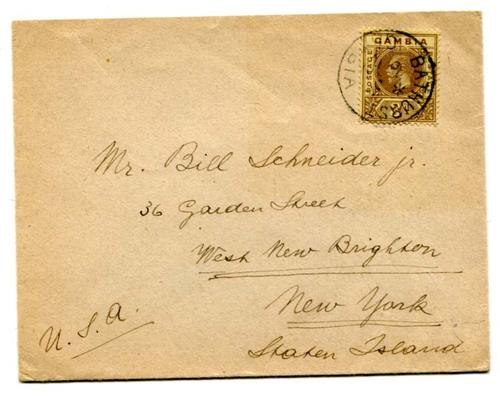 GAMBIA
POSTAGE
BATHURST
Mr. Bill Schneider jr.
36 Garden Street
West New Brighton
New York
U.S.A.
Staten Island